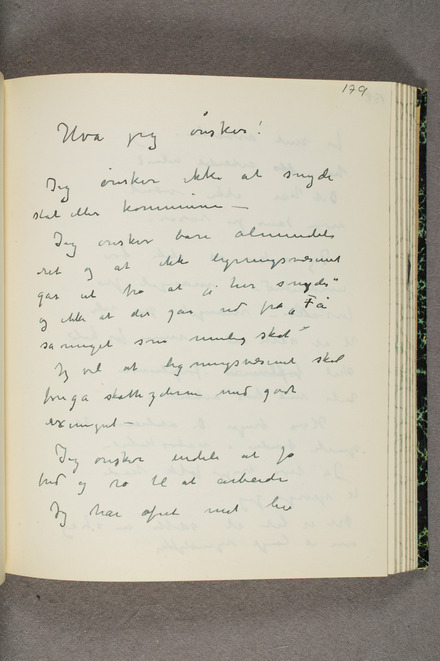 179
Hva jeg ønsker!
Jeg ønsker ikke at snyde
stat eller kommune —
Jeg ønsker bare almindelig
ret og at ikke ligningsvæsenet
går ut fra at „vi her snyder"
og ikke at der gås ud fra „Få
så meget som mulig skat"
Jeg vil at ligningsvæsenet skal
bruge skatteyderne med godt
Jeg ønsker endelig at få
fred og ro til at arbeide
Jeg har ofret mit liv